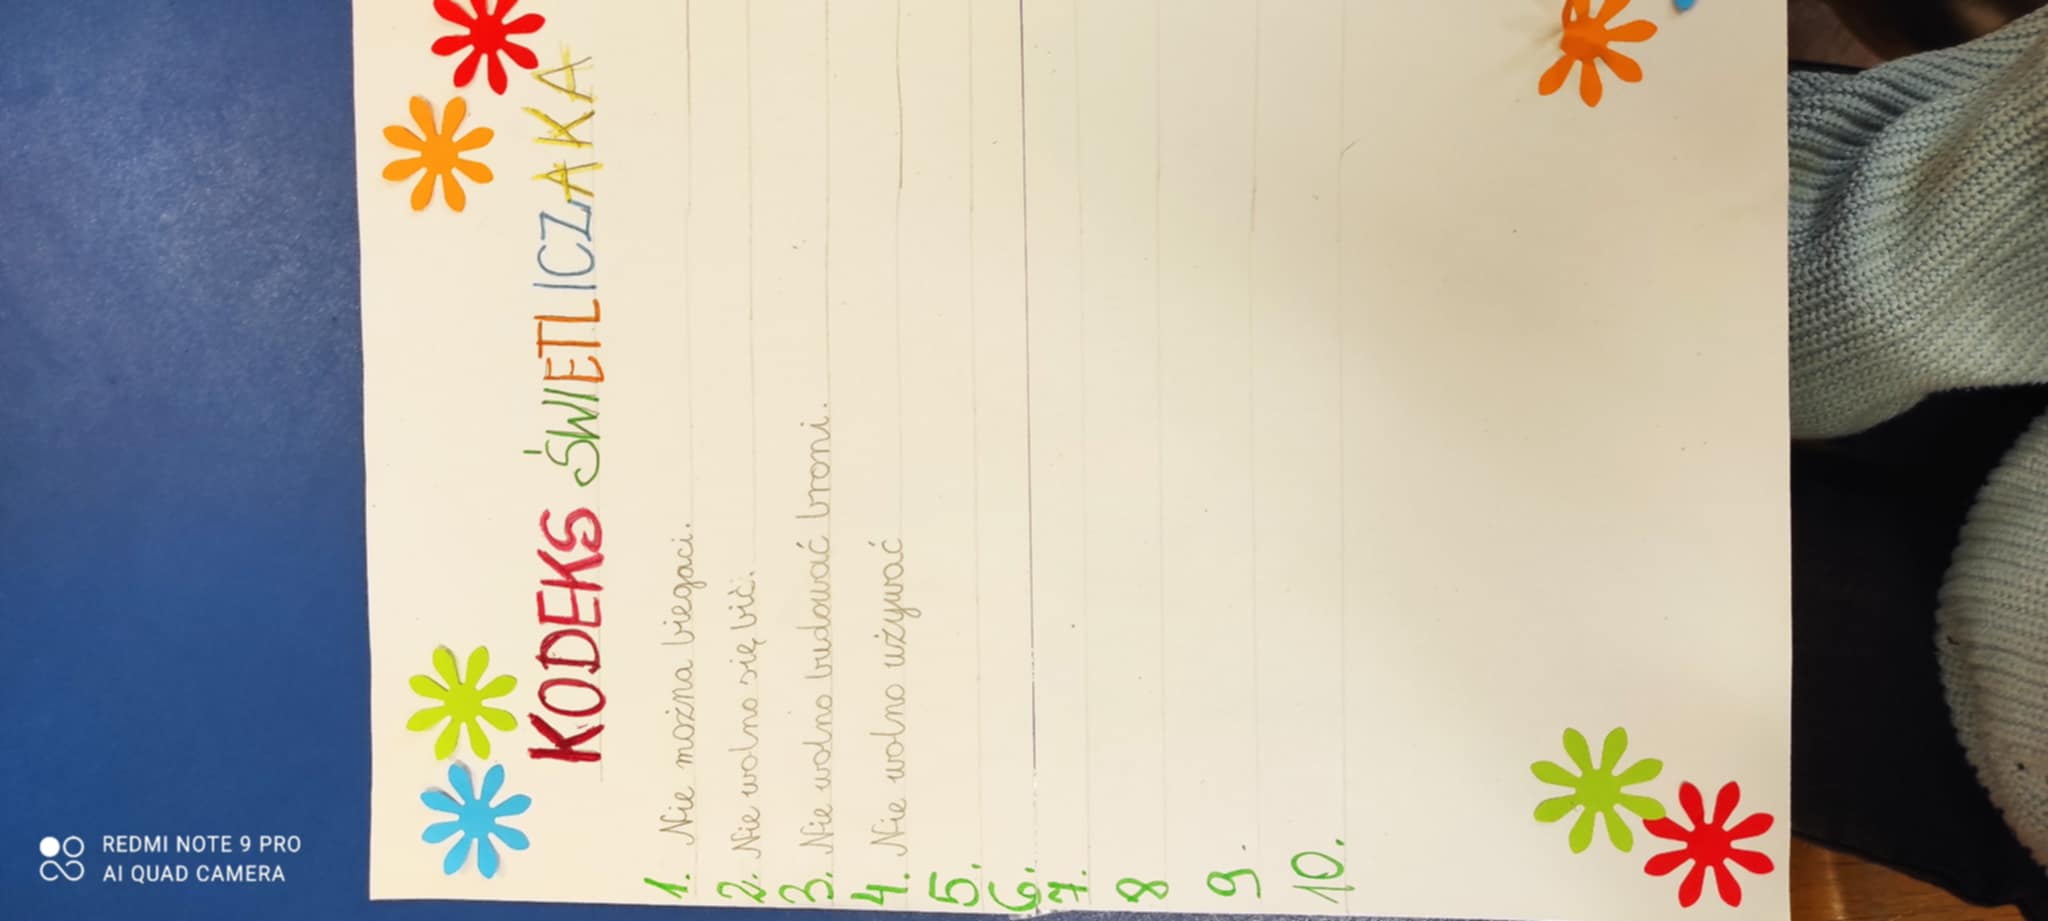 KODEKS ŚWIETLICZAKA
1. Nie można biegaci.
2. Nie wolno się bić.
3. Nie wolno budować broni.
4. Nie wolno używać
5.
6.
7.
8
9.
10.
REDMI NOTE 9 PRO
AI QUAD CAMERA